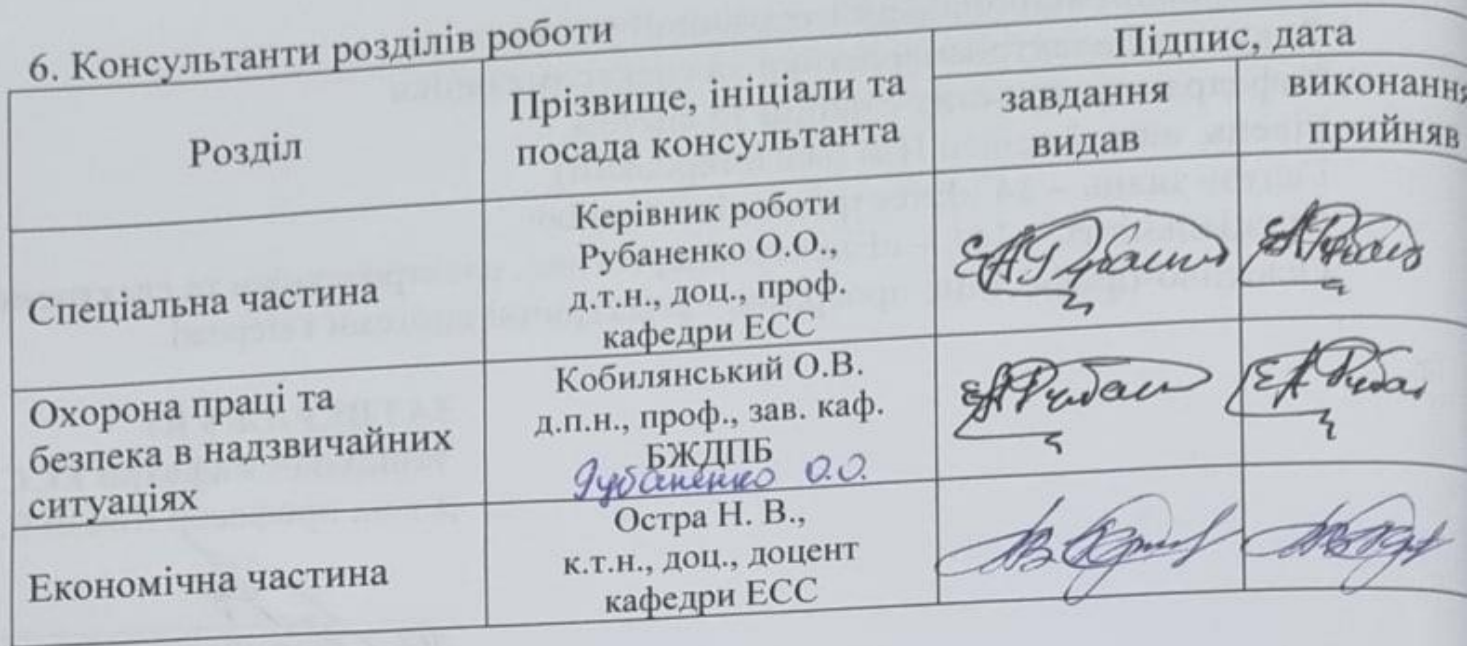 6. Консультанти розділів роботи
Розділ
Прізвище, ініціали та
посада консультанта
Підпис, дата
завдання
видав
виконання
прийняв
Спеціальна частина
Керівник роботи
Рубаненко О.О.,
д.т.н., доц., проф.
кафедри ЕСС
Охорона праці та
безпека в надзвичайних
ситуаціях
Кобилянський О.В.
д.п.н., проф., зав. каф.
БЖДПБ
Рубаненко О.О.
Економічна частина
Остра Н. В.,
к.т.н., доц., доцент
кафедри ЕСС